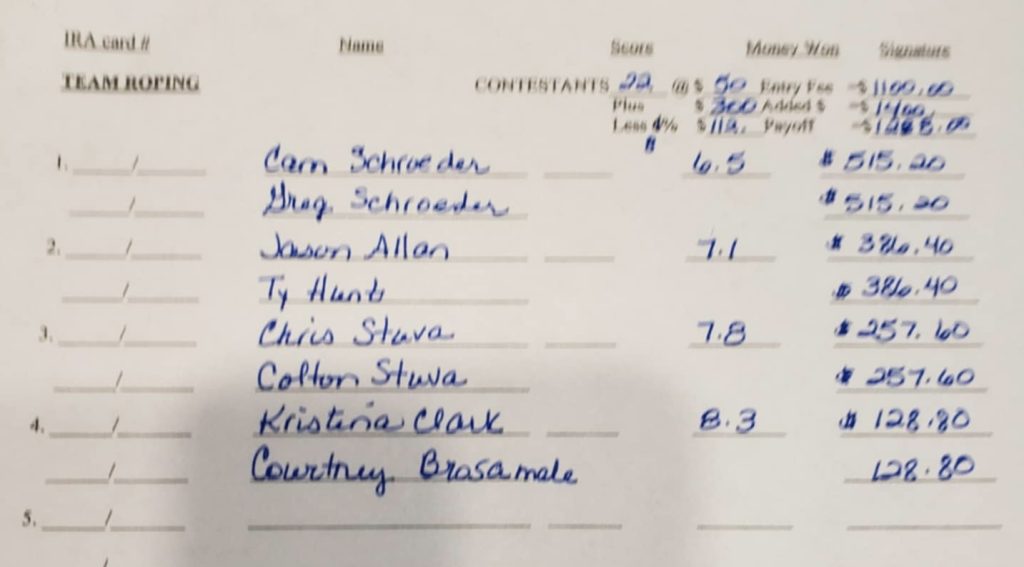 IRA card # Name Score Money Won Signature
TEAM ROPING CONTESTANTS 22 @ $ 50 Entry Fee $1100.00
Plus $ 300 Added $ $1400.
Less % $112. Payoff $1288.00
1. / Cam Schroeder 6.5 $515.20
/ Greg Schroeder $515.20
2. / Jason Allan 7.1 $ 386.40
/ Ty Hunt $ 386.40
3. / Chris Stuva 7.8 $257.60
/ Colton Stuva $ 257.60
4. / Kristina Clark 8.3 $ 128.80
/ Courtney Brasamale 128.80
5. /
/